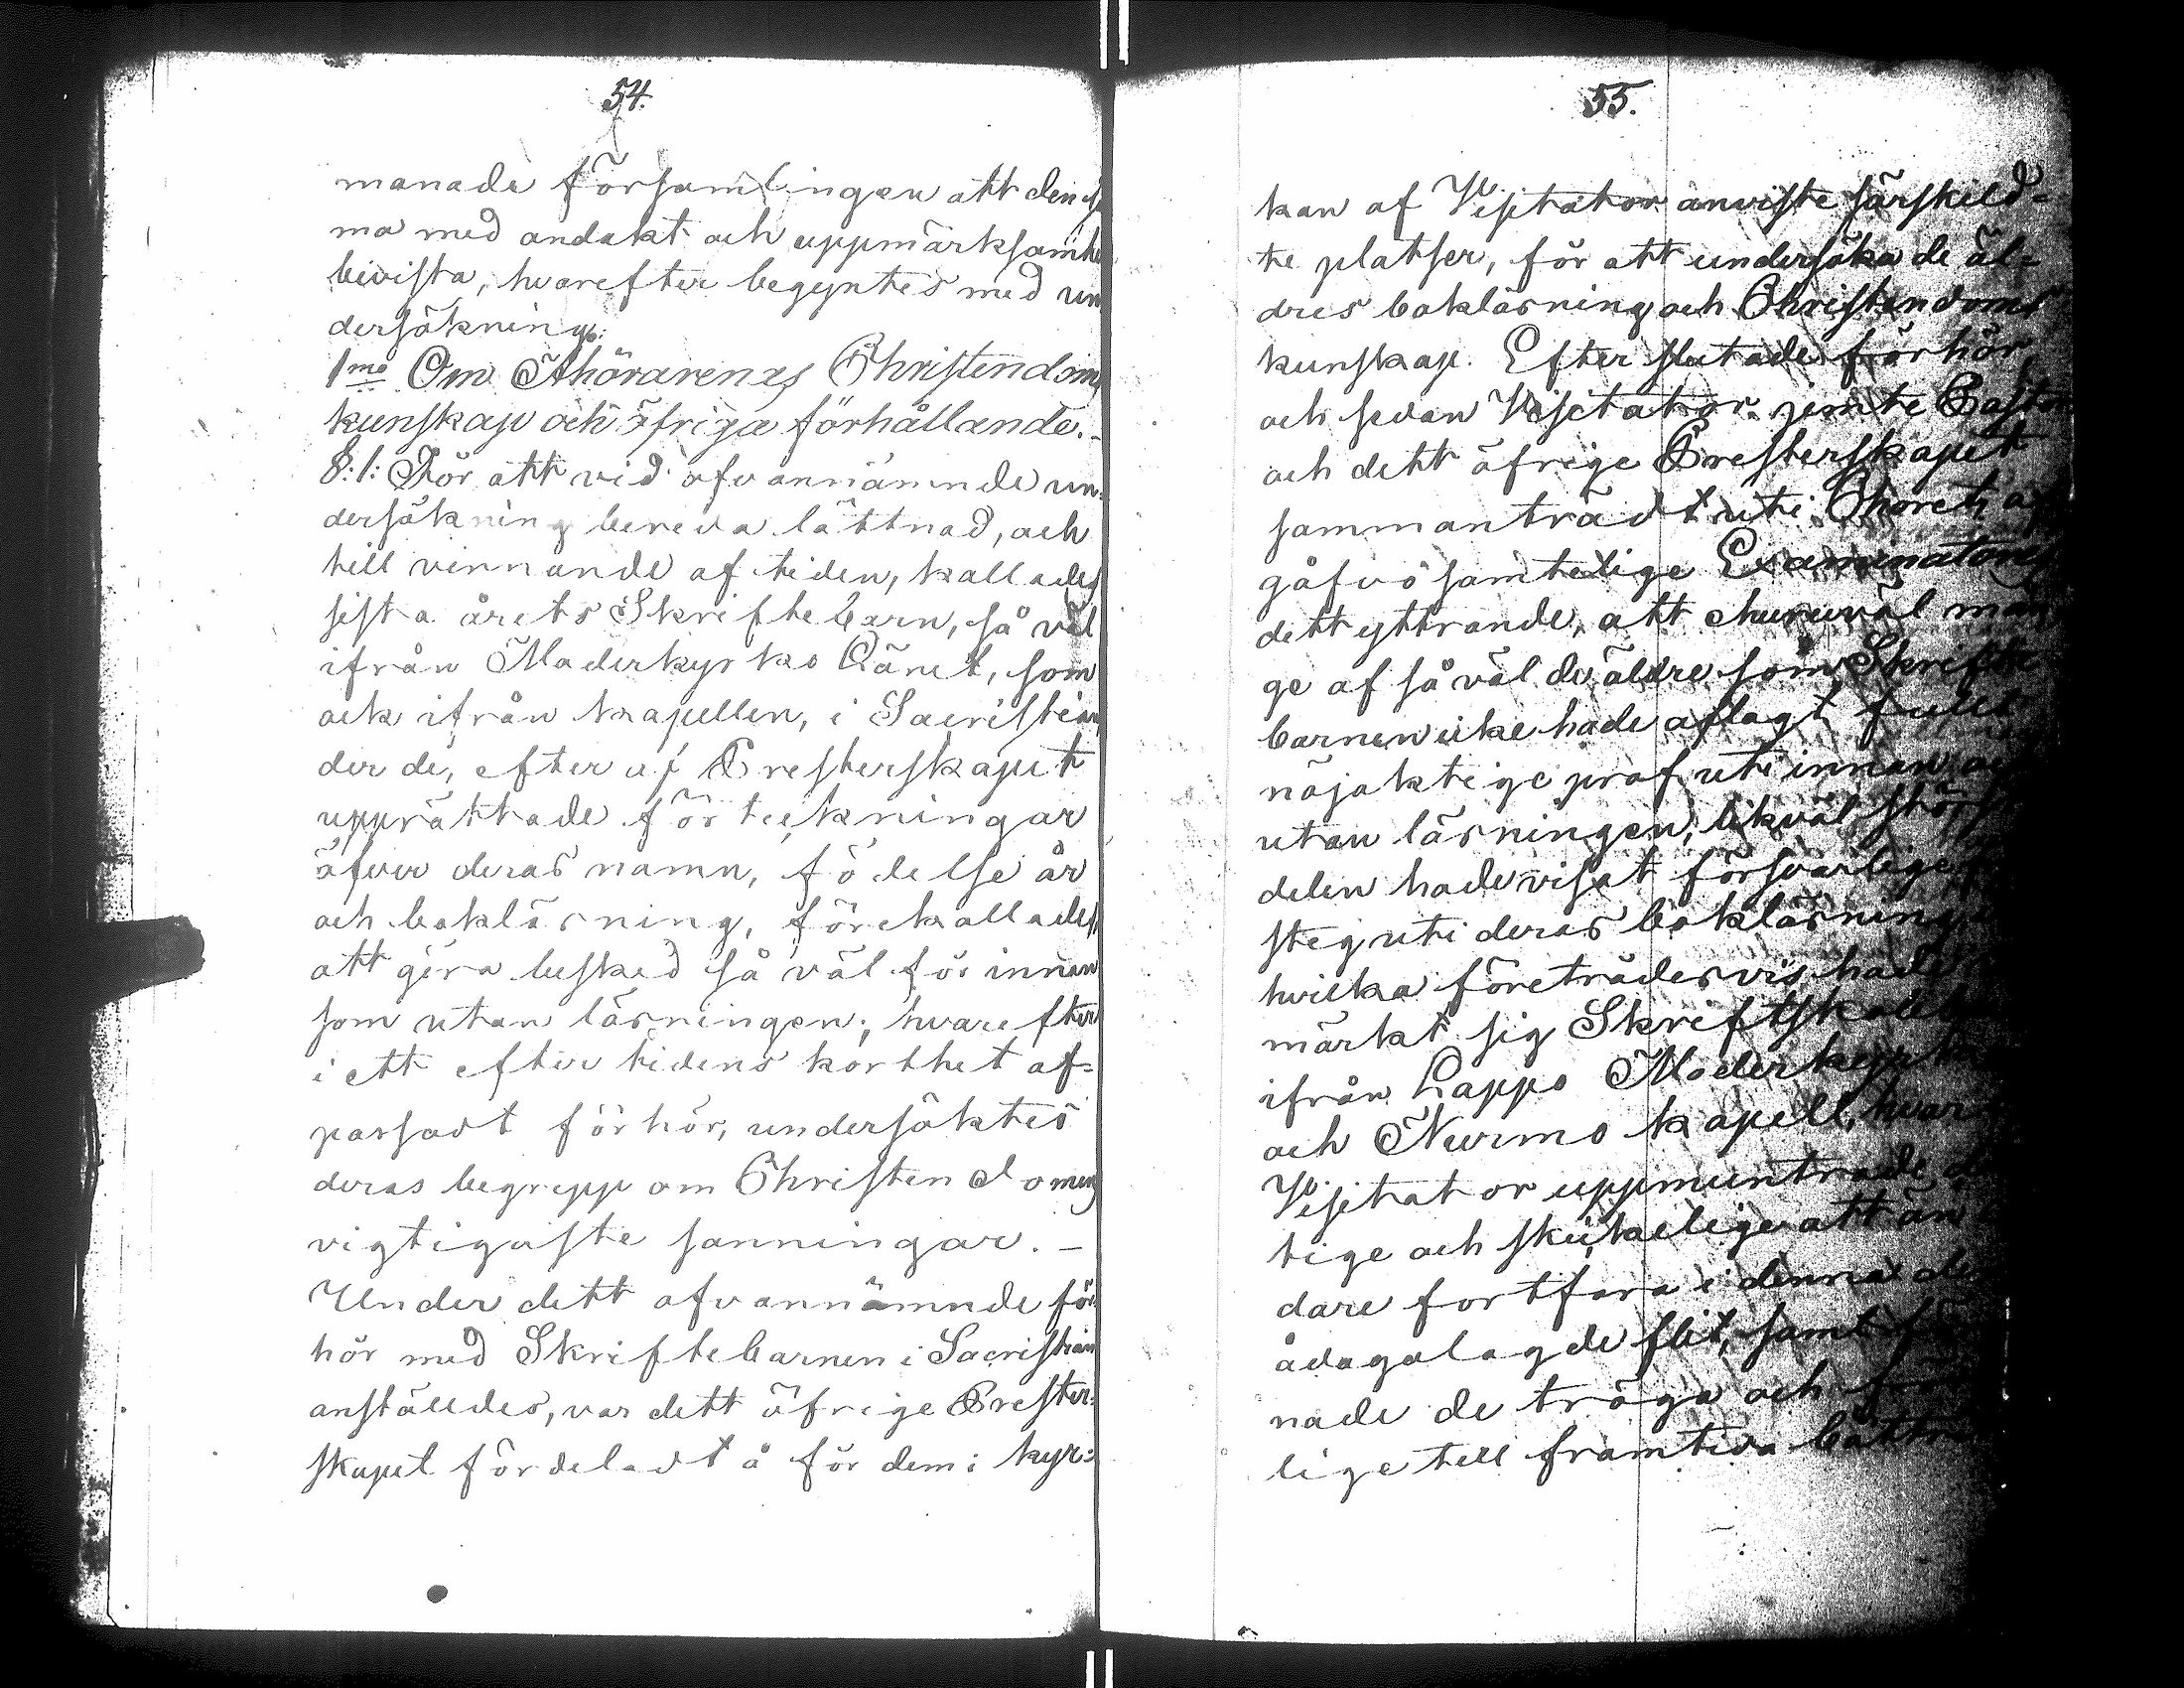 54.
manade församlingen att den sa
ma med andakt och uppmärksamhe
bevista, hvarefter begyntes med un
dersökning:
1mo Om Åhörarenes Christendoms
kunskap och öfriga förhållande. -
§:1: För att vid ofvannämnde un-
dersökning bereda lättnad, och
till vinnande af tiden, kallades
sista årets Skriftebarn, så väl
ifrån Moderkyrko Länet, som
ock ifrån kapellen, i Sacristian
der de, efter af Presterskapet
upprättade förteckningar
öfver deras namn, födelse år
och bokläsning, förekallades
att göra besked så väl för innan
som utan läsningen; hvarefter
i ett efter tidens korthet af=
passadt förhör, undersöktes
deras begrepp om Christendomens
vigtigaste sanningar. -
Under dett ofvannämnde för-
hör med Skriftebarnen i Sacristian
anställdes, var dett öfrige Prester-
skapet fördeladt å för dem i kyr-
55.
kan af Visitator anviste särskild=
te platser, för att undersöka de äl=
dres bokläsning och Christendoms
kunskap. Efter slutade förhör,
och sedan Visitator jemte Pastor
och dett öfrige Presterskapet
sammanträdt uti Choret, af
gåfvo samtelige Examinatores
dett yttrande, att churuväl mån
ge af så väl de äldre som Skrifte
barnen icke hade aflagt fullt
nöjaktige prof uti innan och
utan läsningen, likväl större
delen hade visat försvarlige
steg uti deras bokläsning,
hvilka företrädesvis hade
märkt sig Skriftskolebarn
ifrån Lappo Moderkyrka
och Nurmo kapell, hvar
Visitator uppmuntrade de
tige och skickelige att än
dare fortfara i denna de
ådagalagde flit, samt
nade de tröga och
lige till framtida bättr